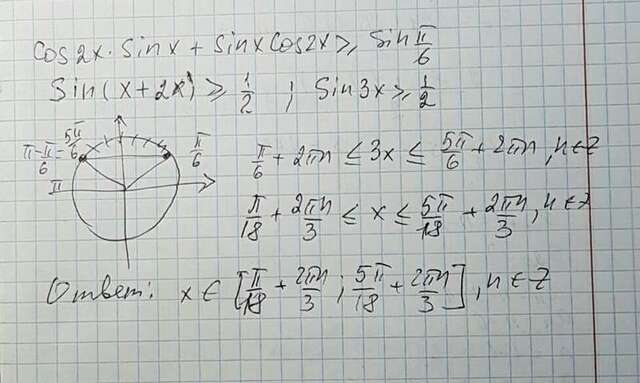 cos2x · sinx + sinx cos2x ⩾ sin π/6
sin(x+2x) ⩾ 1/2 ; sin3x ⩾ 1/2
π - π/6 = 5π/6
π/6
π
π/6 + 2πn ≤ 3x ≤ 5π/6 + 2πn, n∈Z
π/18 + 2πn/3 ≤ x ≤ 5π/18 + 2πn/3, n∈Z
Ответ: x ∈ [π/18 + 2πn/3 ; 5π/18 + 2πn/3], n∈Z